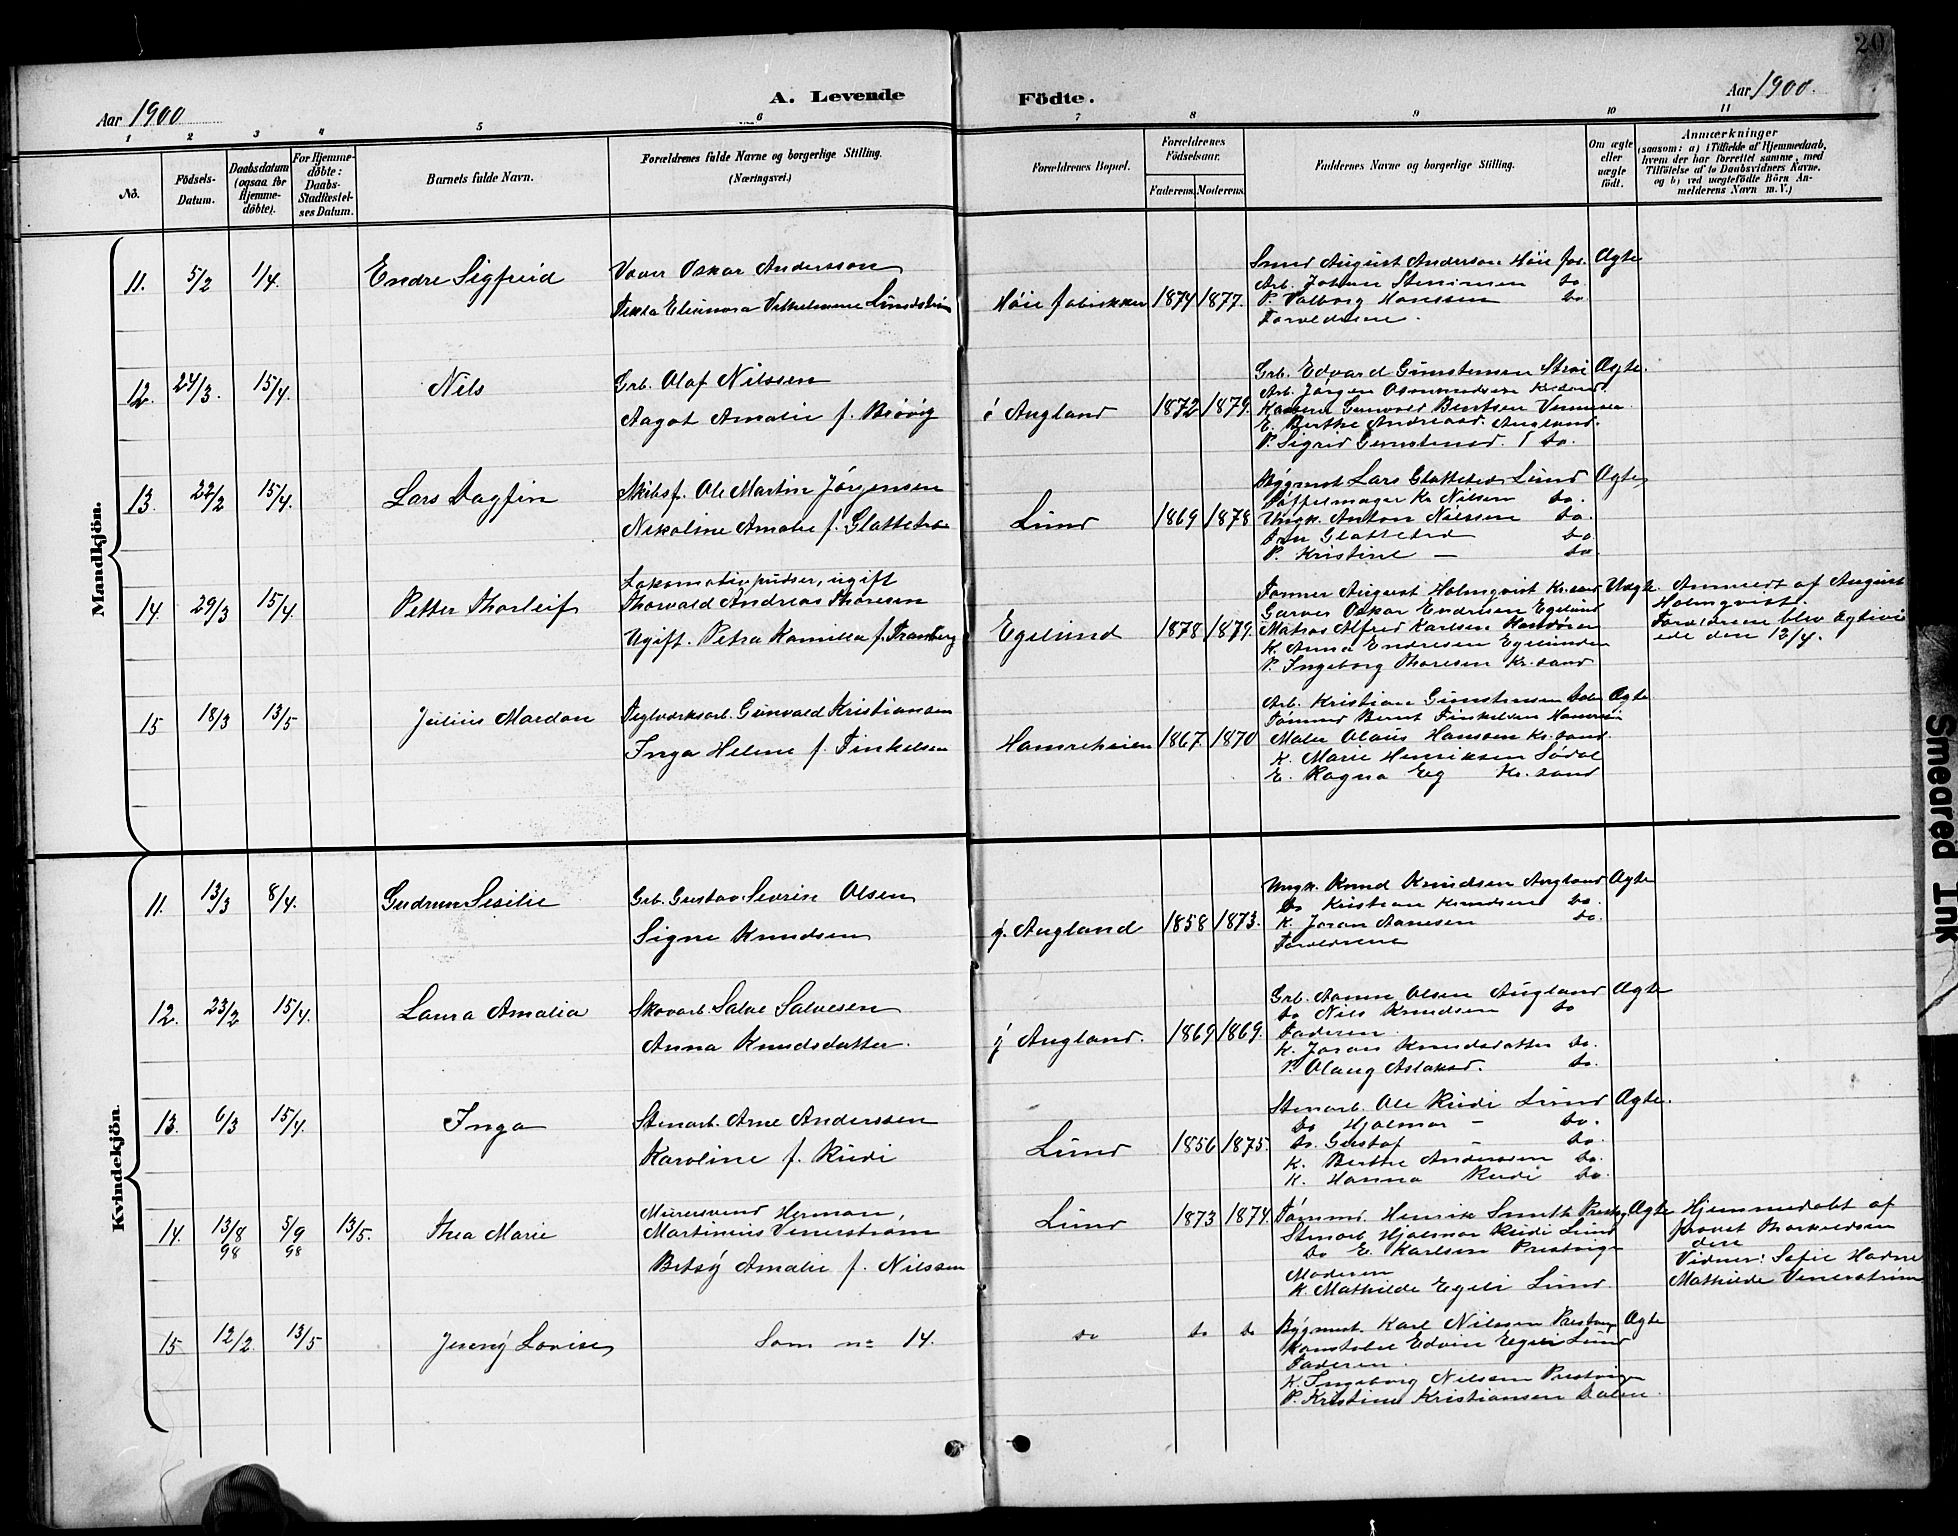 20
Aar 1900
A. Levende
Födte.
Aar 1900.
1 2 3 4 5 6 7 8 9 10 11
No.
Födsels-Datum.
Daabsdatum (ogsaa for Hjemme-döbte).
For Hjemme-döbte: Daabs-Stadfæstel-ses Datum.
Barnets fulde Navn.
Forældrenes fulde Navne og borgerlige Stilling.
(Næringsvei.)
Forældrenes Bopæl.
Forældrenes Födselsaar.
Faderens. Moderens.
Faddernes Navne og borgerlige Stilling.
Om ægte eller uægte födt.
Anmærkninger
(saasom: a) i Tilfælde af Hjemmedaab,
hvem der har forrettet samme, med
Tilföielse af to Daabsvidners Navne,
og b) ved uægtefödte Börn An-
melderens Navn m. V.)
Mandkjön.
11. 5/2 1/4. Endre Sigfreid
Væver Oskar Andersson
Tekla Eleonora Vilhelmine Lundström
Höie fabrikker 1874 1877.
Smed August Anderson Höie fos.
Arb. Johan do.
P. Valborg Hanssen do
Forældrene.
Ægte
12. 24/3. 15/4. Nils
Grb. Olaf Nilssen
Aagot Amalie f. Brövig
Augland 1872 1879.
Grb. Edvard Gunstensen Strai
Arb. Jörgen Osmundsen Kr.sand.
Gunvald Berntsen Vennesla
E. Berthe Andreasd. Augland.
P. Sigrid Gunstensd. do.
Ægte.
13. 22/2 15/4. Lars Dagfin
Skibsf. Ole Martin Jörgensen
Nikoline Amalie f. Glattetre
Lund 1869 1878
Bygmest. Lars Glattetre Lund
Köffelmager Kr. Nilsen do.
Ungk. Anton Nilssen do.
Fru Glattetre do.
P. Kristine — do
Ægte
14. 29/3 15/4. Petter Thorleif
Lokomotivpudser, ugift
Thorvald Andreas Thoresen
Ugift. Petra Kamilla f. Tramberg
Egelund 1878 1879.
August Holmqvist Kr.sand
Garver Oskar Endresen Egelund
Matros Alfred Karlsen
K. Anna Endresen Egelunden
P. Ingeborg Thoresen Kr. sand
Uægte.
Anmeldt af August
Holmqvist.
Forældrene blev ægtevi
ede den 12/4.
15 18/3 13/5 Julius Mardon
Teglværksarb. Gunvald Kristiansen
Inga Helene f. Finkelsen
Hamreheien 1867. 1870
Arb. Kristian Gunstensen Dalen
Tömmer Bernt Finkelsen
Maler Olaus Hansen Kr.sand.
K. Marie Henriksen Södal
E. Ragna Eeg Kr.sand
Ægte
Kvindekjön.
11. 13/3 8/4. Gudrun Sesilie
Grb. Gustav Severin Olsen
Signe Knudsen
y. Augland 1858 1873.
Ungk. Knud Knudsen Augland
Do Kristian Knudsen do.
K. Joran Aanesen do.
Forældrene
Ægte
12. 23/2 15/4. Laura Amalia
Skovarb. Salve Salvesen
Anna Knudsdatter.
y Augland. 1869 1869.
Grb. Aanen Olsen Augland
do Nils Knudsen do
Faderen.
K. Joran Knudsdatter do.
P. Olaug Aslaksd. do.
Ægte
13. 6/3 15/4. Inga
Stenarb. Arne Anderssen
Karoline f. Rudi
Lund 1856 1875.
Stenarb. Ole Rudi Lund
Do Hjalmar - do.
do. Gustaf - do.
K. Berthe Anderssen do.
K. Hanna Rudi do.
Ægte.
14. 13/8 98 5/9 98 13/5. Thea Marie
Murersvend Herman
Martinius Venerström
Betsy Amalie f. Nilssen
Lund 1873 1874.
Tömmd. Henrik
Stenarb. Hjalmar Rudi Lund
do E. Karlsen Prestvigen
Moderen
K. Mathilde Egeli Lund.
Ægte
Hjemmedöbt af
provst Thorkildsen
Vidner: Sofie
Mathilde Venerström
15 12/2. 13/5 Jenny Lovise
Som n= 14.
do do do
Bygmest. Karl Nilssen
Konstabel Edvin Egeli Lund
Faderen.
K. Ingeborg Nilssen Prestvigen
P. Kristine Kristiansen Dalen.
Ægte
Smeared Ink